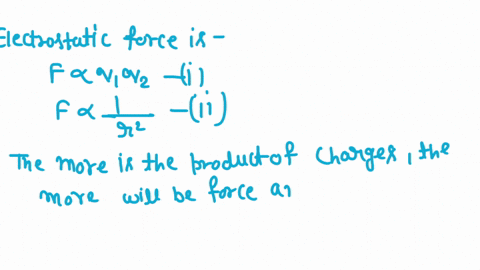 Electrostatic force is -
F ∝ q₁q₂ -(i)
F ∝ 1/r² -(ii)
The more is the product of charges, the
more will be force a